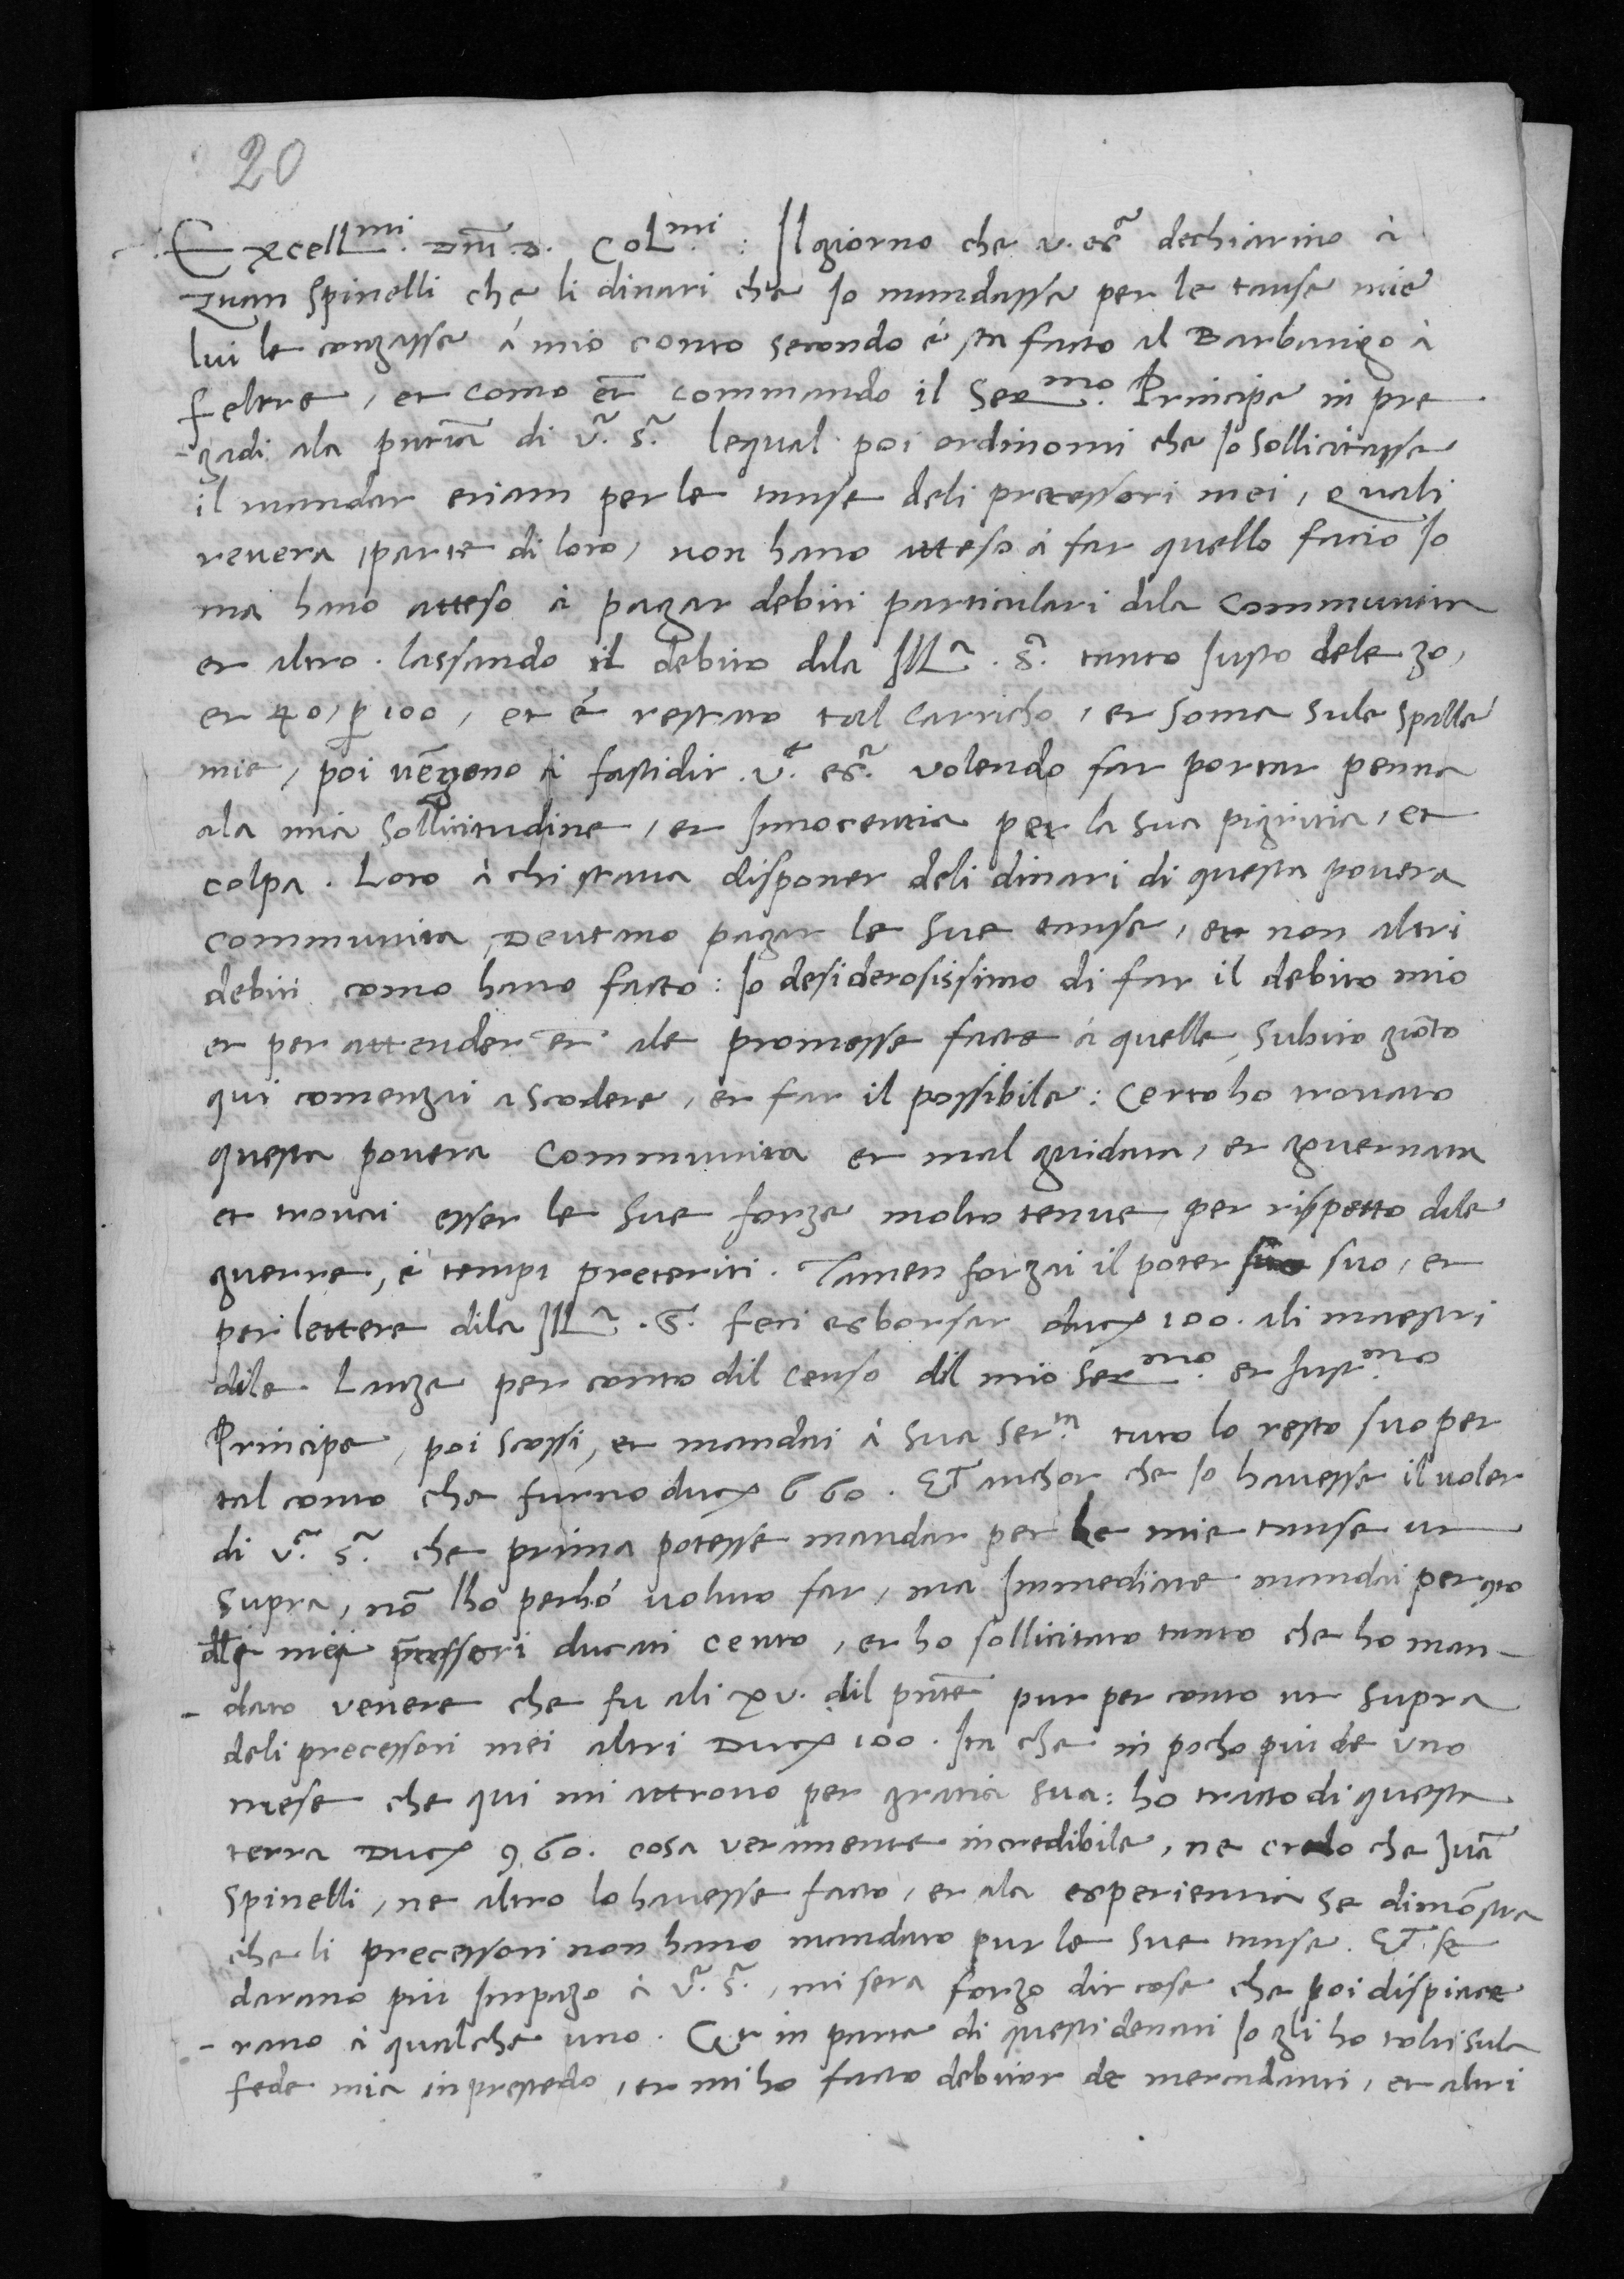 20
Excell.mi Dni. D. Col.mi: Il giorno che v. ex.a dechiarino à
Zuan Spinelli che li dinari che Io mandasse per le tanse mie
lui le conzasse á mio conto secondo é sta facto al Barbarigo à
feltre, et como et commando il Ser.mo Principe in pre
-gadi ala pntia di v.a s.a lequal poi ordinomi che Io sollicitasse
il mandar etiam per le tanse deli precessori mei, quali
revera, parte di loro, non hano atteso à far quello facio Io
ma hano atteso à pagar debiti particulari dila Communita
et altro. lassando il debito dila Ill.a S.a tanto Iusto dele 30,
et 40, p 100, et è restato tal carricho, et soma sule spalle
mie, poi uẽgono à fastidir v.e ex.a volendo far portar penna
ala mia sollicitudine, et Innocentia per la sua pigritia, et
colpa. Loro à chi stava disponer deli dinari di questa povera
communita, Deveano pagar le sue tanse, et non altri
debiti como hano facto: Io desiderosissimo di far il debito mio
et per attender et ale promesse facte à quelle, subito giõto
qui comenzai a scodere, et far il possibile: Certo ho trovato
questa povera Communita et mal guidata, et governata
et trovai esser le sue forze molto tenue per rispetto dile
guerre, è tempi preteriti. Tamen forzai il poter suo suo, et
per lettere dila Ill.a S. feci exborsar duc 100. ali maestri
dile Lanze per conto dil censo dil mio Ser.mo et Iust.mo
Principe, poi scossi, et mandai à sua Ser.ta tuto lo resto suo per
tal conto che furno duc 660. Et anchor che Io havesse il voler
di v.a s.a che prima potesse mandar per le mie tanse ut
supra, nõ lho perhó voluto far, ma Immediate mandai per cto
deli mei pcessori ducati cento, et ho sollicitato tanto che ho man-
-dato venere che fu ali xv. dil pnte pur per conto ut supra
deli precessori mei altri Duc 100. Ita che in pocho piu de uno
mese che qui mi attrovo per gratia sua: ho tracto di questa
terra Duc 960. cosa veramente incredibile, ne credo che Zuã
Spinelli, ne altro lo havesse facto, et ala experientia se dimõstra
che li precessori non hano mandato pur le sue tanse. Et se
darano piu Impazo à v.a s.a, mi sera forzo dir cose che poi dispiace
-rano à qualche uno. Et in parte di questi denari Io gli ho tolti sula
fede mia inprestedo, et mi ho facto debitor de mercadanti, et altri